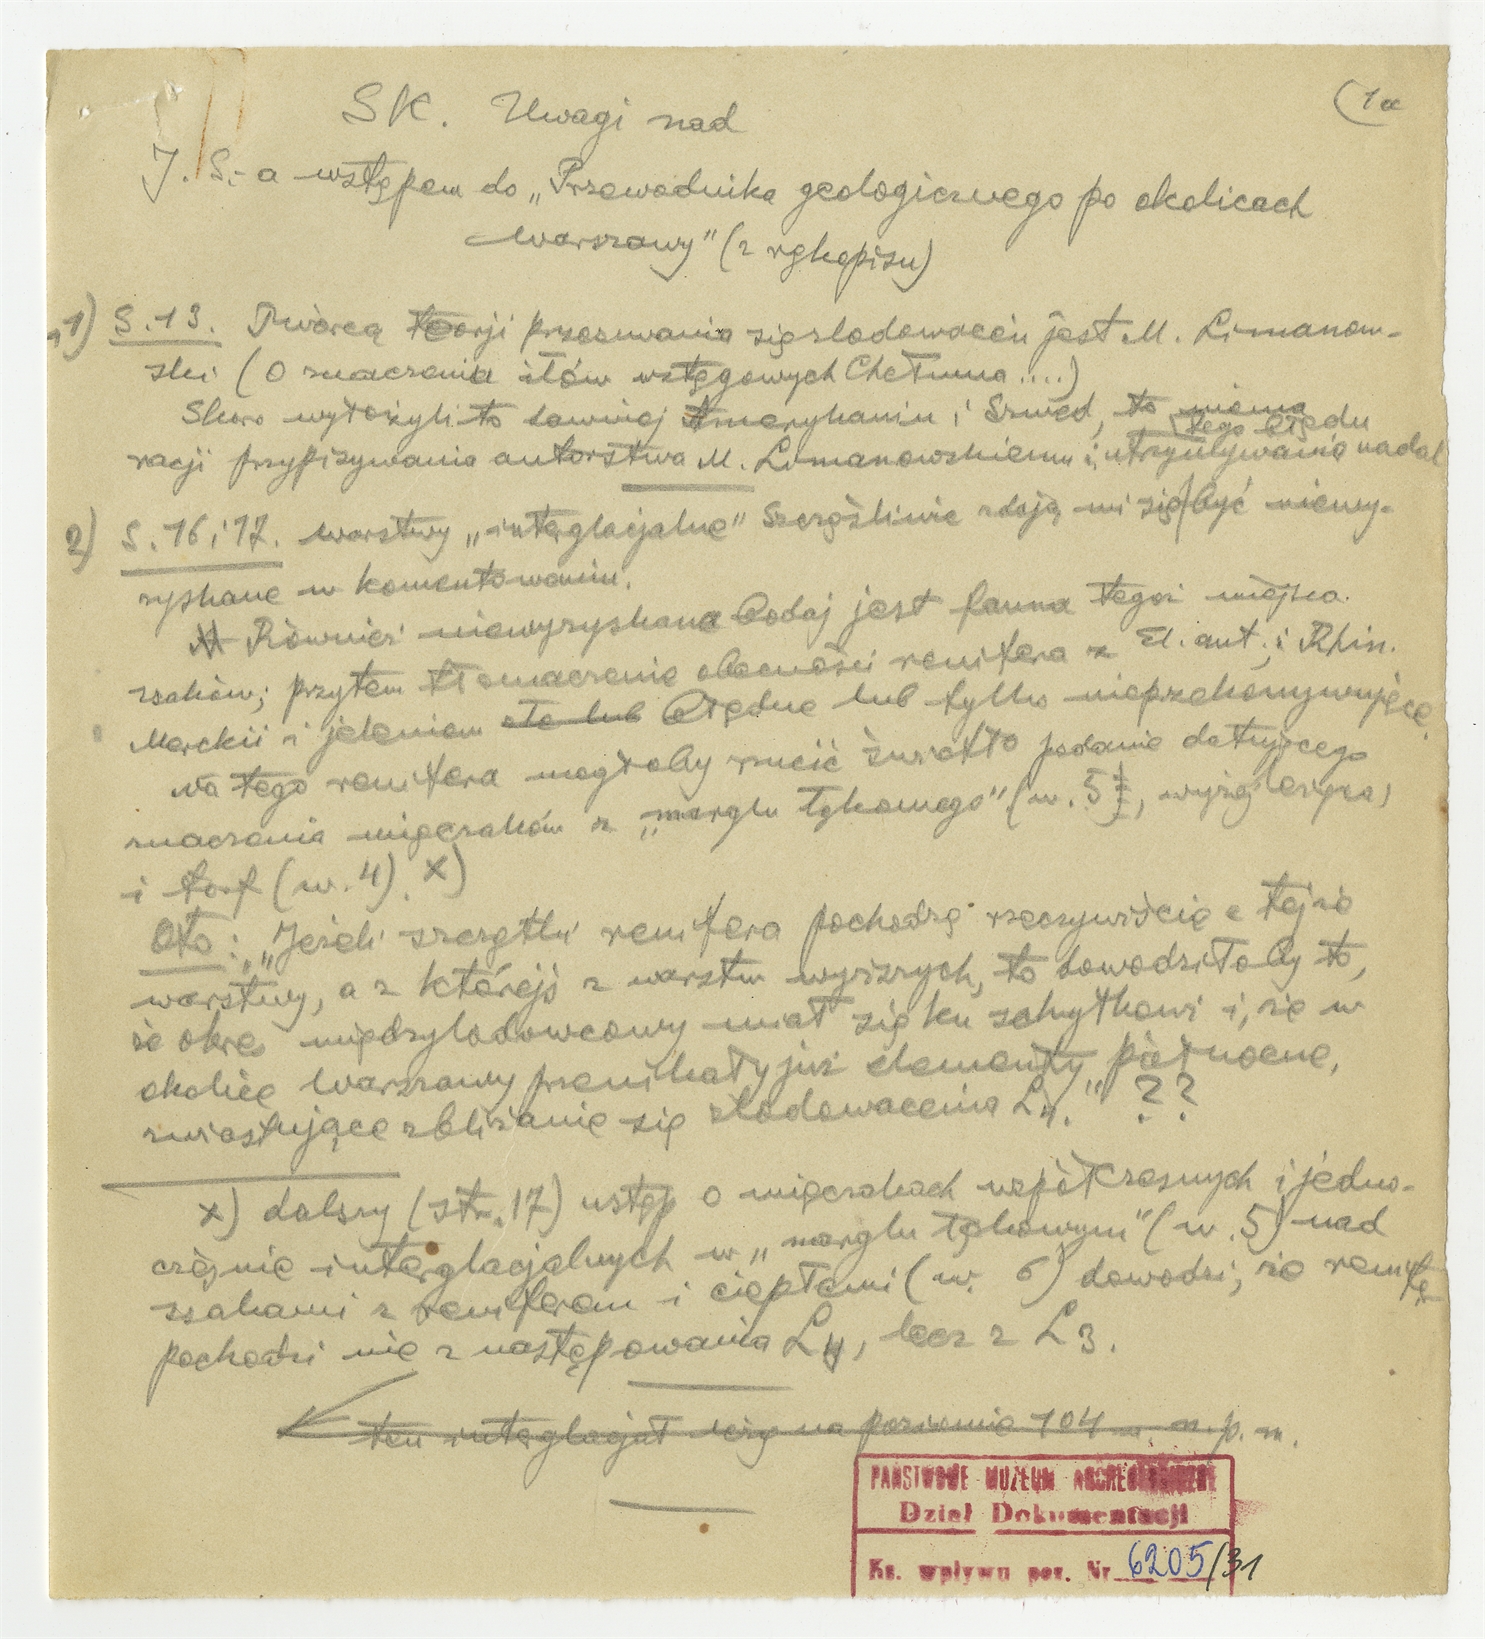 (1a
SK. Uwagi nad
J. S.-a wstępem do „Przewodnika geologicznego po okolicach
Warszawy” (z rękopisu)
1) S. 13. Twórcą teorji przesuwania się zlodowaceń jest M. Limanow-
ski (O znaczeniu iłów wstęgowych Chełmna ....)
Skoro wyłożyli to dawniej Amerykanin i Szwed, to niema
racji przypisywania autorstwa M. Limanowskiemu i utrzymywania nadal
tego błędu
2) S. 16 i 17. Warstwy „interglacjalne” Szczęśliwic zdają mi się być niewy-
zyskane w komentowaniu.
Również niewyzyskana bodaj jest fauna tegoż miejsca.
ssaków; przytem tłomaczenie obecności renifera z El. ant. i Rhin.
Merckii i jeleniem albo lub błędne lub tylko nieprzekonywujące
Na tego renifera mogłoby rzucić światło podanie datującego
znaczenia mięczaków z „marglu łąkowego” (w. 5, wyżej leżąca)
i torf (w. 4). x)
Oto: „Jeżeli szczątki renifera pochodzą rzeczywiście z tejże
warstwy, a z którejś z warstw wyższych, to dowodziłoby to,
że okres międzylodowcowy miał się ku schyłkowi i, że w
okolice Warszawy przenikały już elementy północne,
zwiastujące zbliżanie się zlodowacenia L4.” ??
x) dalszy (str. 17) ustęp o mięczakach współczesnych i jedno-
cześnie interglacjalnych w „marglu łąkowym” (w. 5) nad
ssakami z reniferem i ciepłemi (w. 6) dowodzi, że renifer
pochodzi nie z następowania L4, lecz z L3.
ten interglacjał leży na poziomie 104 m. n. p. m.
PAŃSTWOWE MUZEUM ARCHEOLOGICZNE
Dział Dokumentacji
Ks. wpływu poz. Nr 6205/31